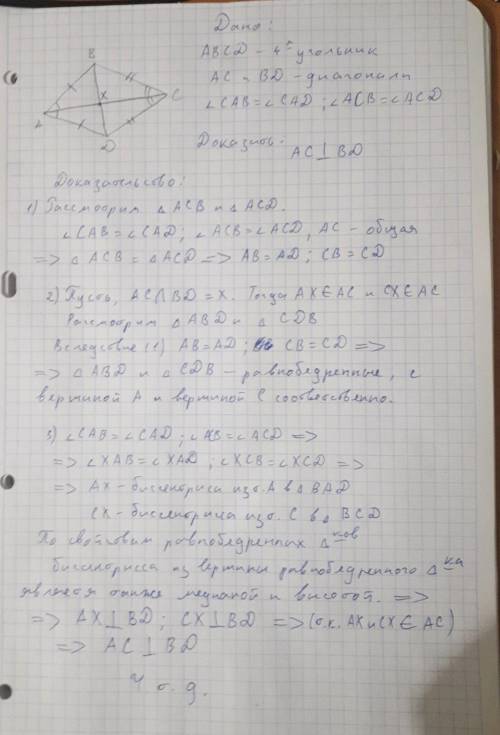 Дано:
ABCD - 4х угольник
AC и BD - диагонали
∠CAB = ∠CAD ; ∠ACB = ∠ACD
Доказать:
AC ⊥ BD
B
X
C
A
D
Доказательство:
1) Рассмотрим △ACB и △ACD.
∠CAB = ∠CAD ; ∠ACB = ∠ACD, AC - общая
=> △ACB = △ACD => AB = AD ; CB = CD
2) Пусть, AC ∩ BD = X. Тогда AX ∈ AC и CX ∈ AC
Рассмотрим △ABD и △CDB
Вследствие (1) AB = AD ; CB = CD =>
=> △ABD и △CDB - равнобедренные, с
вершиной A и вершиной C соответственно.
3) ∠CAB = ∠CAD ; ∠ACB = ∠ACD =>
=> ∠XAB = ∠XAD ; ∠XCB = ∠XCD =>
=> AX - биссектриса из т. A в △BAD
CX - биссектриса из т. C в △BCD
По свойствам равнобедренных △ков
биссектрисса из вершины равнобедренного △ка
является также медианой и высотой. =>
=> AX ⊥ BD ; CX ⊥ BD => (т.к. AX и CX ∈ AC)
=> AC ⊥ BD
Ч т. д.